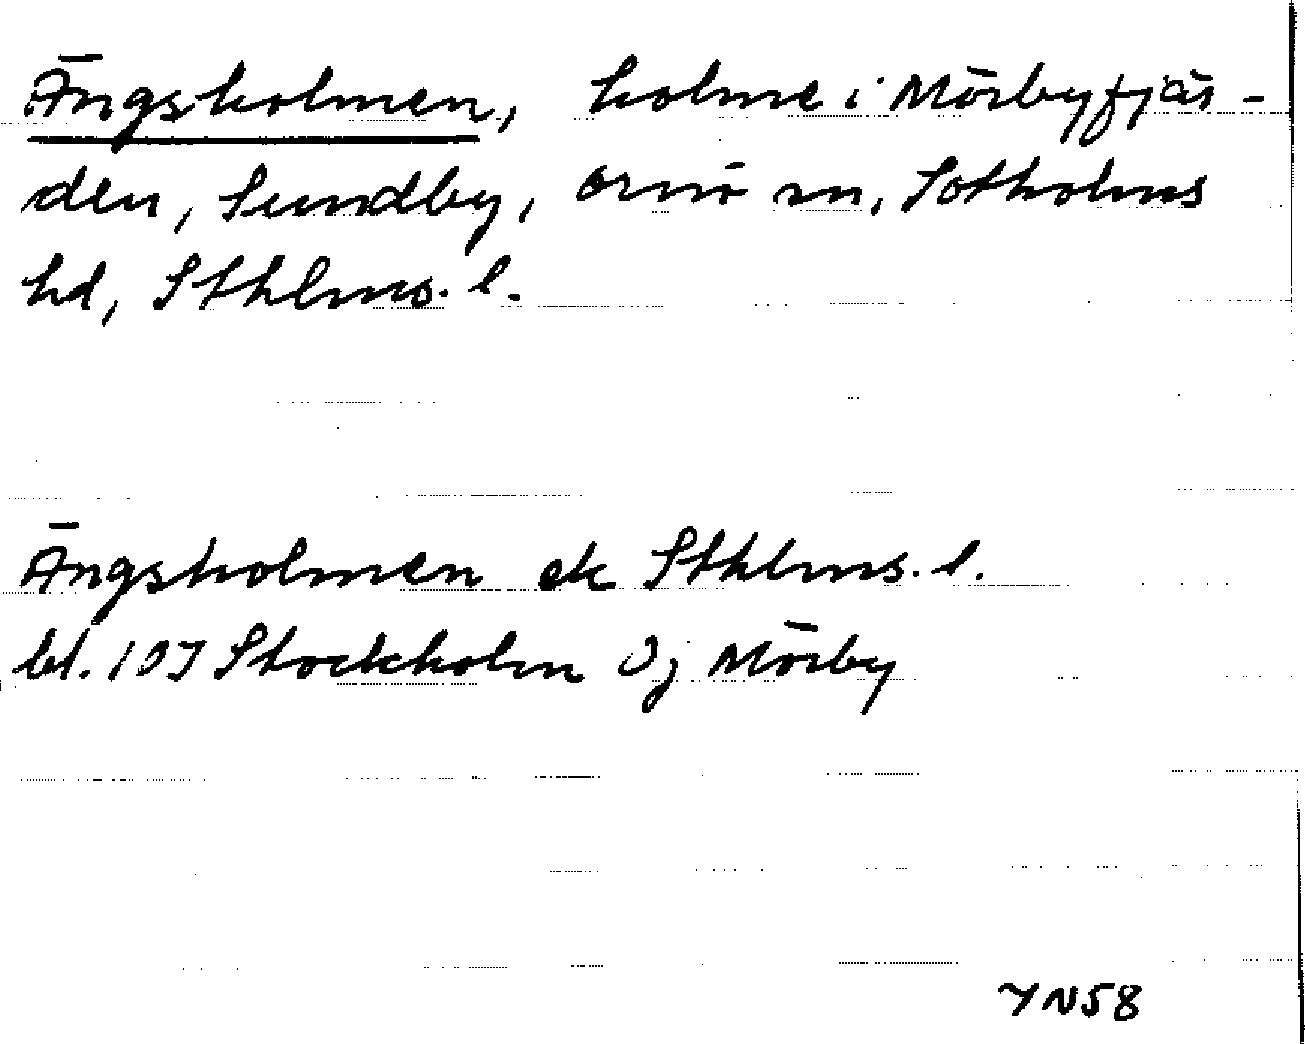 Ängsholmen, holme i Mörbyfjär-
den, Sundby, Ornö sn, Sotholms
hd, Sthlms. l.
Ängsholmen ek Sthlms. l.
bl. 107 Stockholm Oj Mörby
YN58